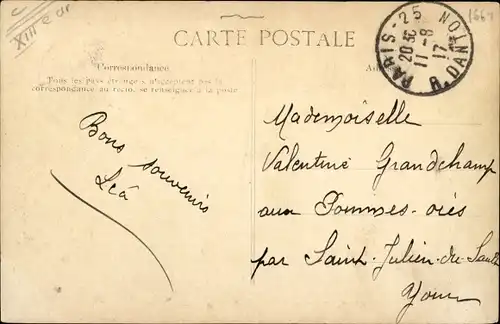 XIII er
1664
CARTE POSTALE
PARIS-25
20 30
11-8
17
R. DANTON
Correspondance
Tous les pays étrangers n'acceptent pas la
correspondance au recto, se renseigner à la poste
Bons souvenirs
Léa
Mademoiselle
Valentine Grandchamp
aux
par Saint-Julien-du-Sault
Yonne